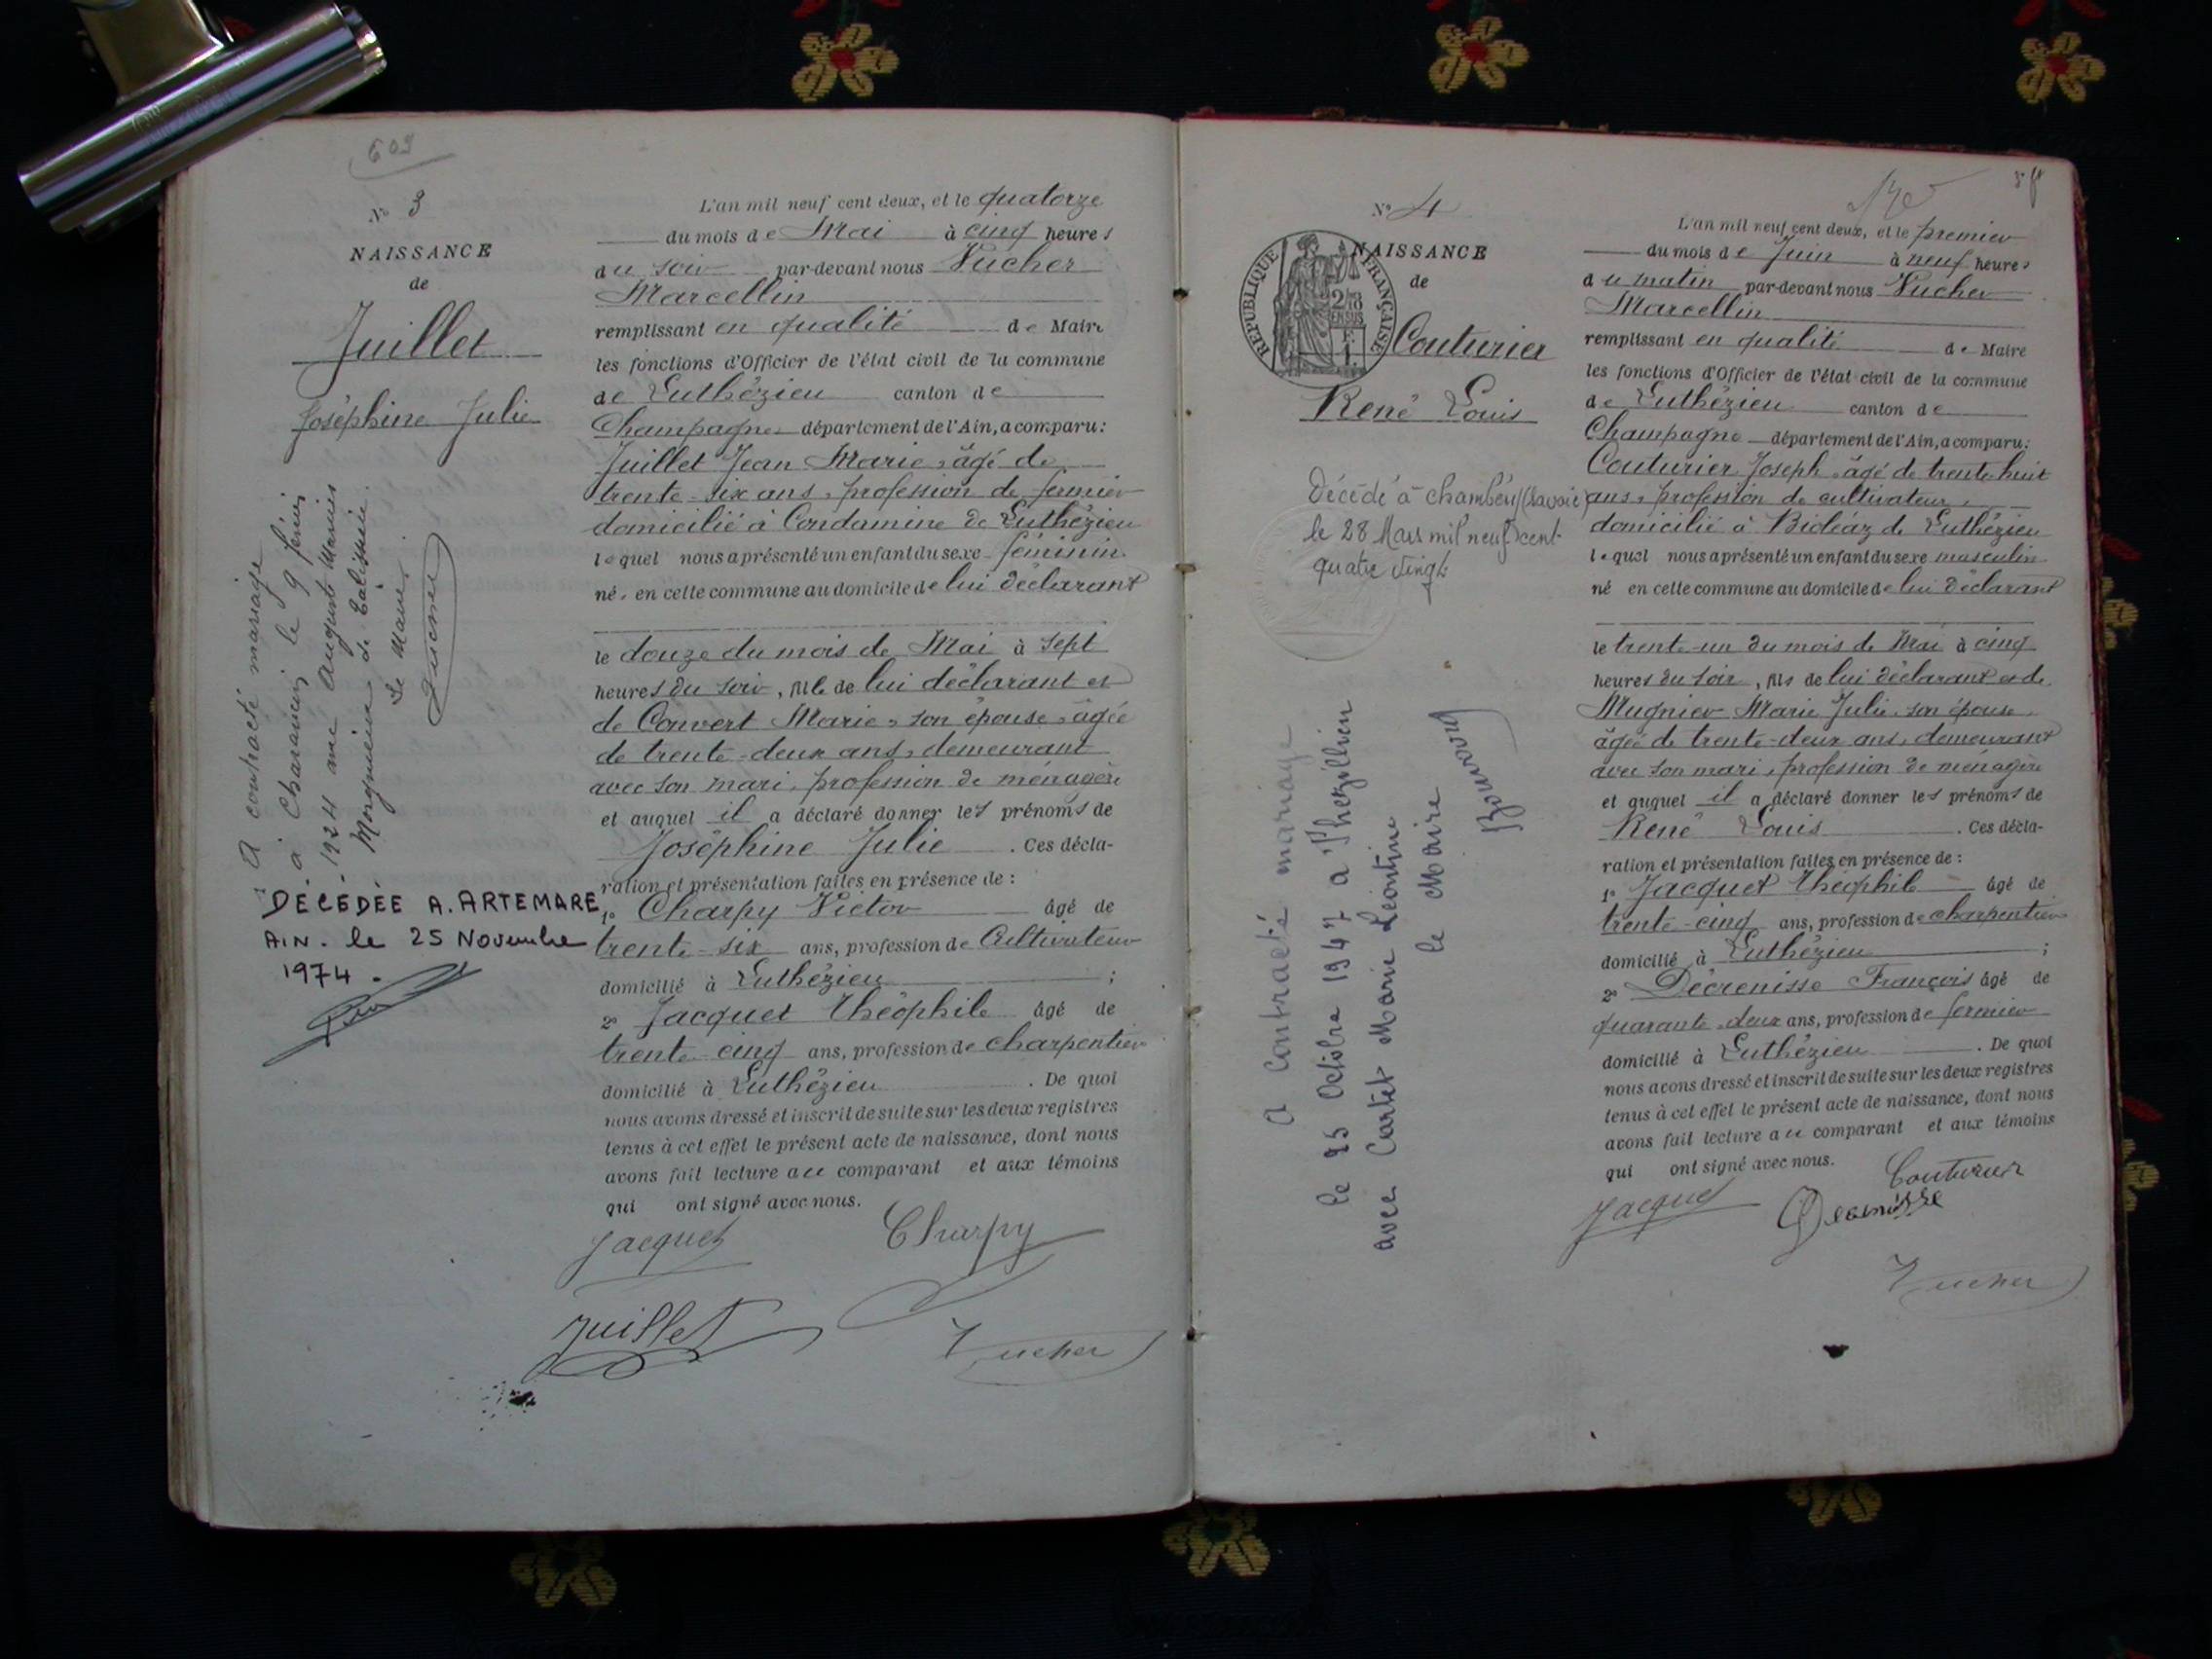 609
N° 3
NAISSANCE
de
Juillet
Joséphine Julie
A contracté mariage
à Charancin le 9 février
1924 avec Auguste Marius
de
Le Maire
DÉCÉDÉE A. ARTEMARE
AIN. le 25 Novembre
1974.
L'an mil neuf cent deux, et le quatorze
du mois de Mai à cinq heures
du soir par-devant nous Vucher
Marcellin
remplissant en qualité de Maire
les fonctions d'Officier de l'état civil de la commune
de Luthézieu canton de
Champagne département de l'Ain, a comparu:
Juillet Jean Marie, âgé de
trente-six ans, profession de fermier
domicilié à Condamine de Luthézieu
lequel nous a présenté un enfant du sexe féminin
né, en cette commune au domicile de lui déclarant
le douze du mois de Mai à sept
heures du soir, fille de lui déclarant et
de Convert Marie, son épouse, âgée
de trente-deux ans, demeurant
avec son mari, profession de ménagère
et auquel il a déclaré donner les prénoms de
Joséphine Julie . Ces décla-
ration et présentation faites en présence de :
1° Charpy Victor âgé de
trente-six ans, profession de Cultivateur
domicilié à Luthézieu ;
2° Jacquet Théophile âgé de
trente-cinq ans, profession de charpentier
domicilié à Luthézieu . De quoi
nous avons dressé et inscrit de suite sur les deux registres
tenus à cet effet le présent acte de naissance, dont nous
avons fait lecture au comparant et aux témoins
qui ont signé avec nous.
Jacquet Charpy
Juillet Vucher
N° 4
NAISSANCE
de
RÉPUBLIQUE FRANÇAISE
Couturier
René Louis
Décédé à Chambéry (Savoie)
le 28 Mars mil neuf cent
quatre vingt
A contracté mariage
le 25 Octobre 1947 à Thézillieu
avec Cartet Marie Léontine
le Maire
L'an mil neuf cent deux, et le premier
du mois de Juin à neuf heures
du matin par-devant nous Vucher
Marcellin
remplissant en qualité de Maire
les fonctions d'Officier de l'état civil de la commune
de Luthézieu canton de
Champagne département de l'Ain, a comparu:
Couturier Joseph, âgé de trente-huit
ans, profession de cultivateur,
domicilié à Bioléaz de Luthézieu
lequel nous a présenté un enfant du sexe masculin
né en cette commune au domicile de lui déclarant
le trente-un du mois de Mai à cinq
heures du soir, fils de lui déclarant et de
Mugnier Marie Julie, son épouse,
âgée de trente-deux ans, demeurant
avec son mari, profession de ménagère
et auquel il a déclaré donner les prénoms de
René Louis . Ces décla-
ration et présentation faites en présence de :
1° Jacquet Théophile âgé de
trente-cinq ans, profession de charpentier
domicilié à Luthézieu ;
2° Décrenisse François âgé de
quarante-deux ans, profession de fermier
domicilié à Luthézieu . De quoi
nous avons dressé et inscrit de suite sur les deux registres
tenus à cet effet le présent acte de naissance, dont nous
avons fait lecture au comparant et aux témoins
qui ont signé avec nous.
Couturier
Jacquet Decrenisse
Vucher